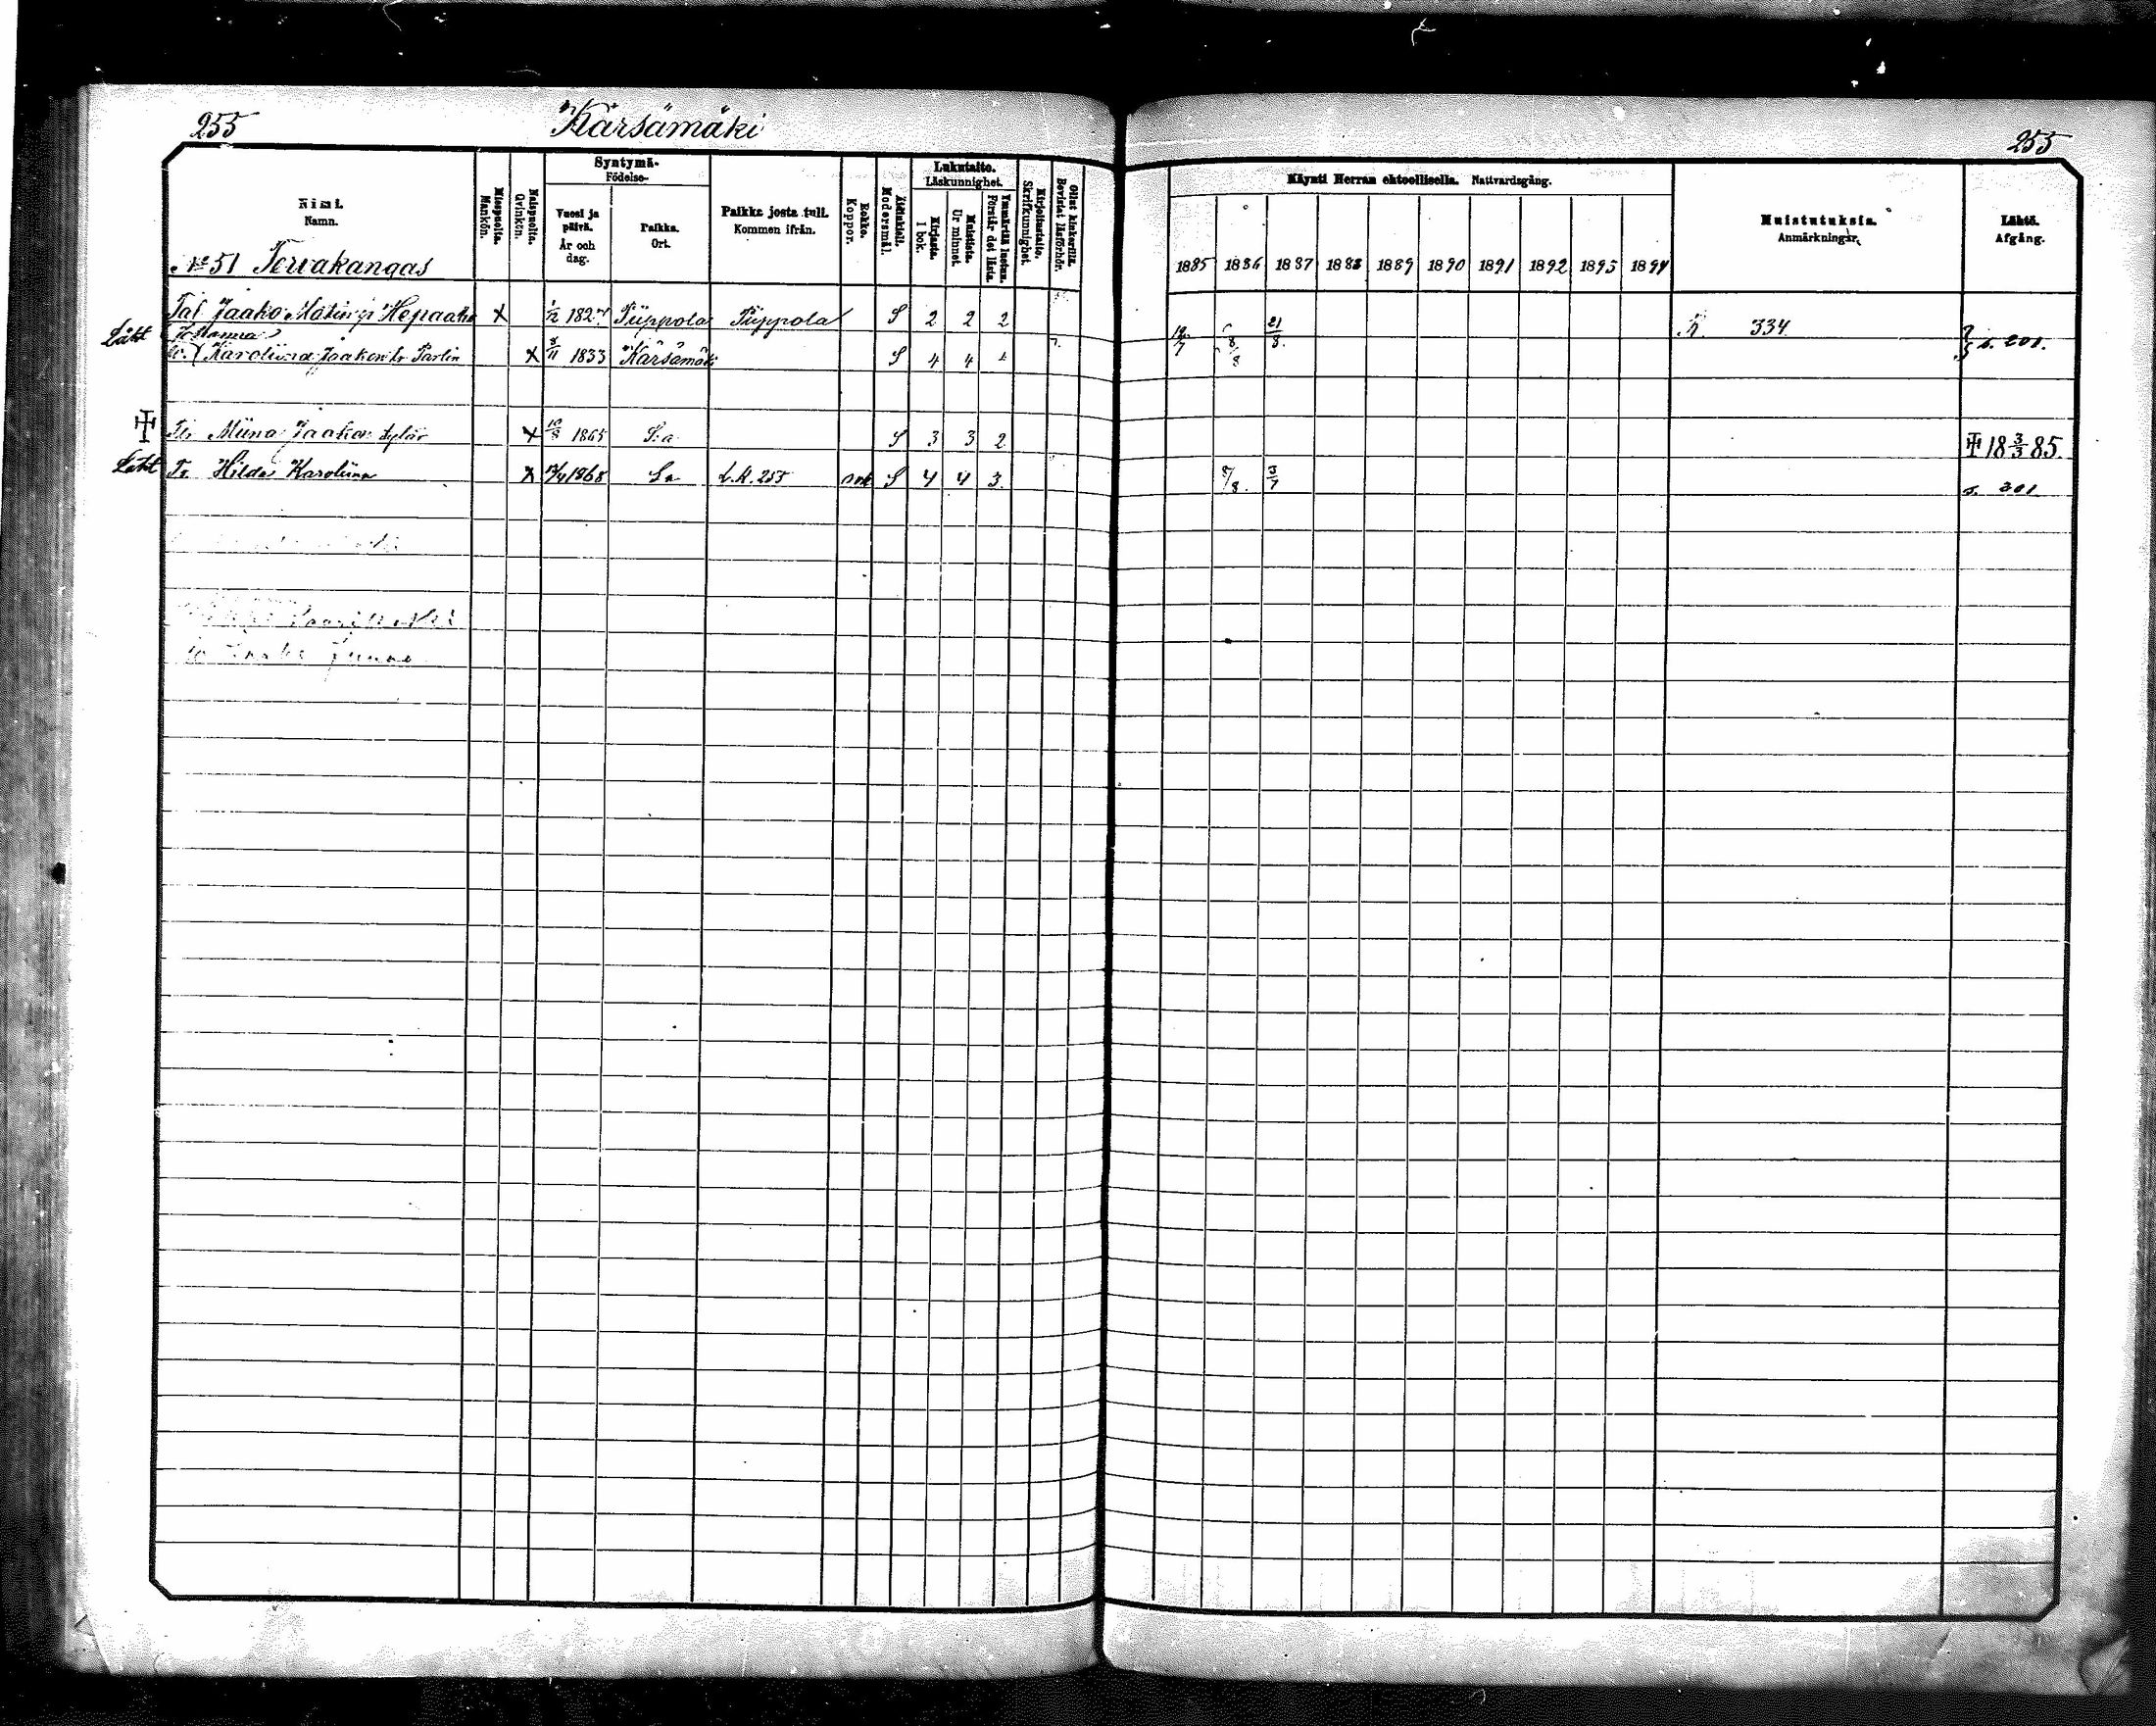 255 Kärsämäki 255
Nimi. Namn.
Miespuolia. Mankön.
Naispuolia. Qvinkön.
Syntymä- Födelse-
Vuosi ja päivä. År och dag.
Paikka. Ort.
Paikka josta tuli. Kommen ifrån.
Rokko. Koppor.
Äidinkieli. Modersmål.
Lukutaito. Läskunnighet.
Kirjasta. I bok.
Muistista. Ur minnet.
Ymmärtää luetun. Förstår det lästa.
Kirjoitustaito. Skrifkunnighet.
Ollut kinkerillä. Bevistat läsförhör.
Käynti Herran ehtoollisella. Nattvardsgång.
1885 1886 1887 1888 1889 1890 1891 1892 1893 1894
Muistutuksia. Anmärkningar.
Lähtö. Afgång.
No 51 Tervakangas
Tal Jaako Matin p. Hepaaho x 1/12 1827 Piippola Piippola S 2 2 2 21/8 334
Läht Johanna
Karoliina Jaakon tr Parlin x 8/11 1833 Kärsämäki S 4 4 4 s. 201.
Tr Miina Jaakon tytär x 10/8 1865 S:a S 3 3 2 18 3/3 85.
Läht Tr Hilda Karoliina x 1868 S:a L.K. 255 rok S 4 4 3 8/8. 3/7 s. 201